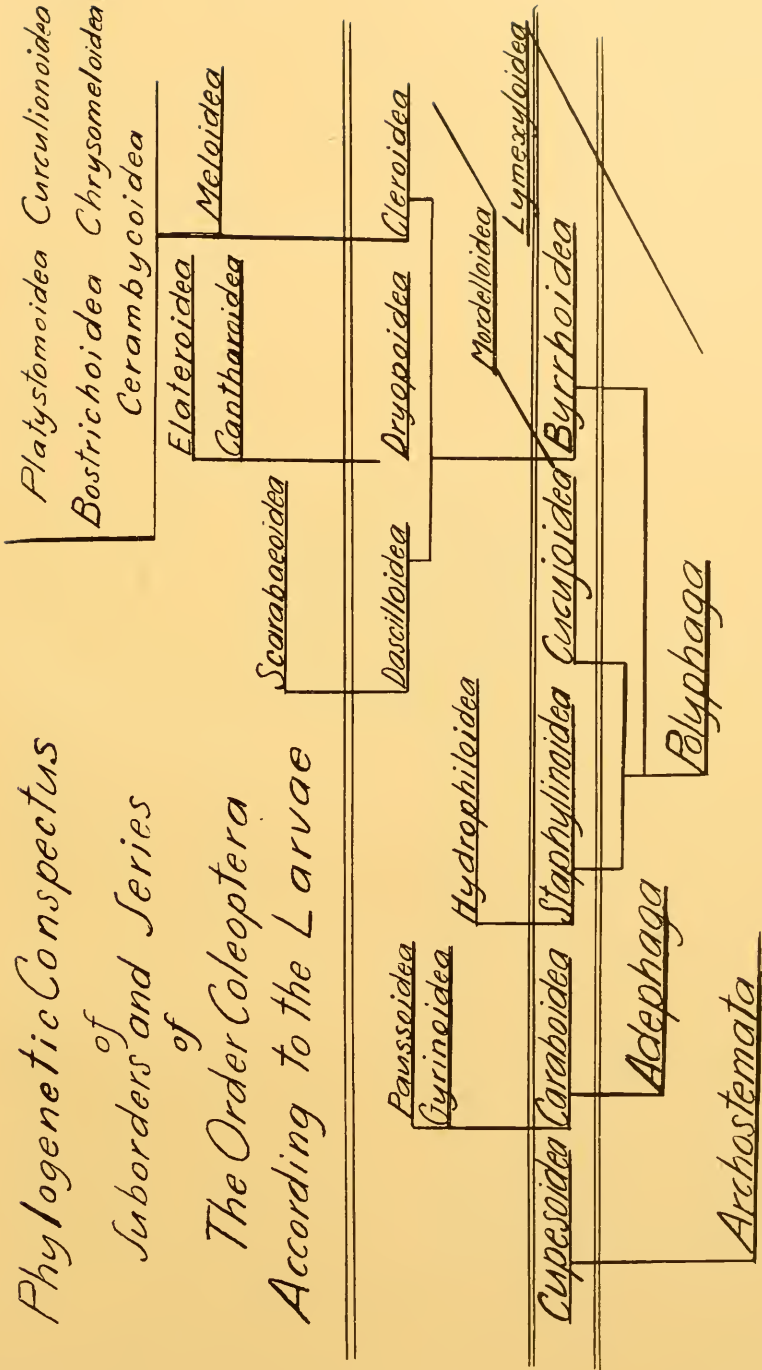 Phylogenetic Conspectus
of
Suborders and Series
of
The Order Coleoptera
According to the Larvae
Platystomoidea Curculionoidea
Bostrichoidea Chrysomeloidea
Cerambycoidea
Elateroidea
Meloidea
Cantharoidea
Scarabaeoidea
Dascilloidea
Dryopoidea
Cleroidea
Paussoidea
Gyrinoidea
Hydrophiloidea
Mordelloidea
Lymexyloidea
Cupesoidea
Caraboidea
Staphylinoidea
Cucujoidea
Byrrhoidea
Adephaga
Polyphaga
Archostemata